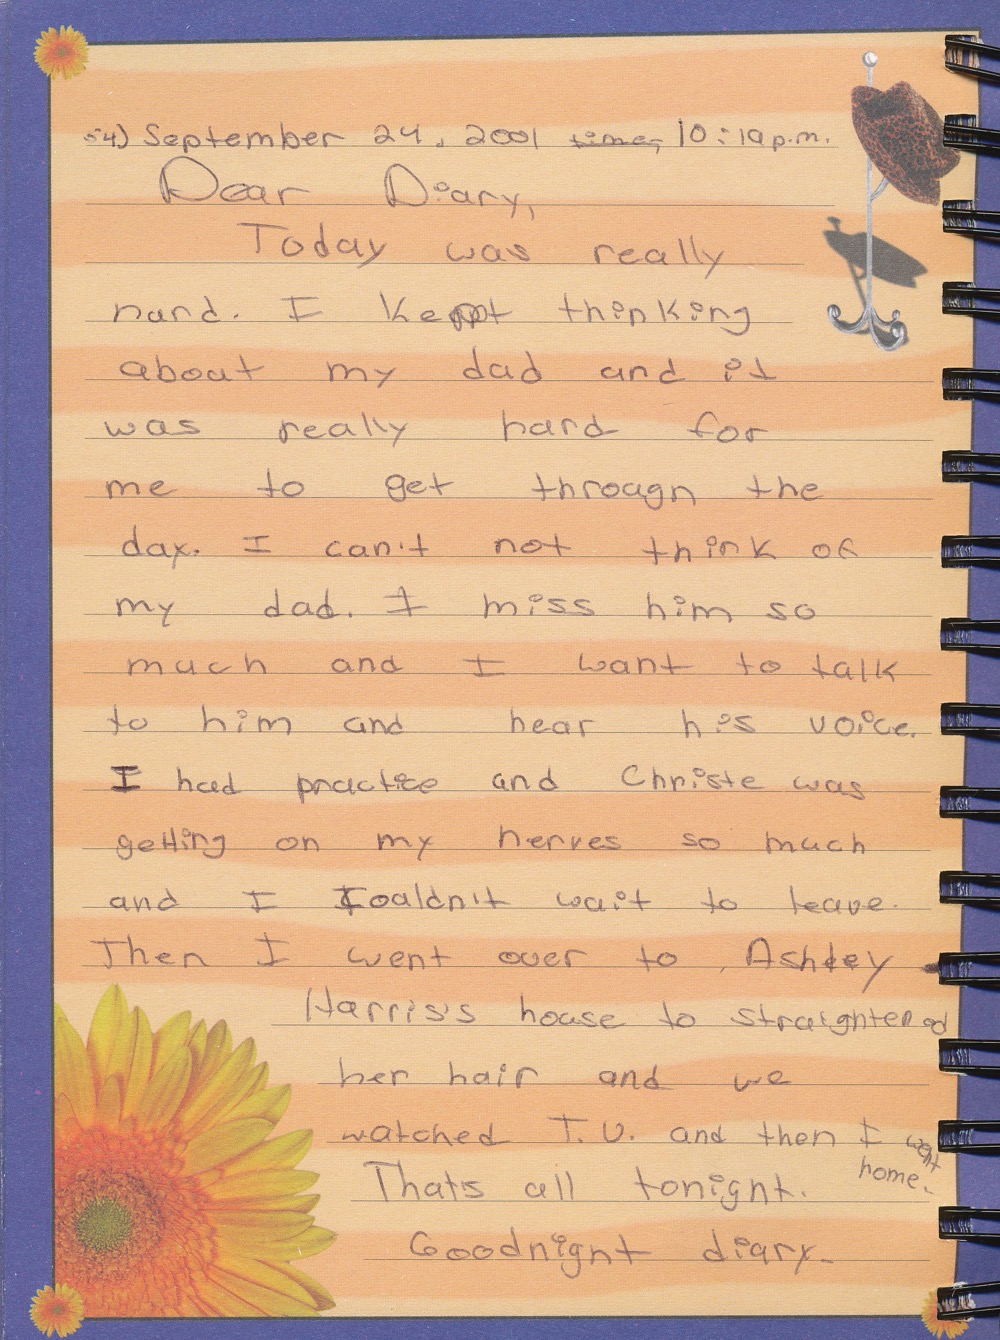 54) September 24, 2001 time; 10:19p.m.
Dear Diary,
Today was really
hard. I kept thinking
about my dad and it
was really hard for
me to get through the
day. I can't not think of
my dad. I miss him so
much and I want to talk
to him and hear his voice.
I had practice and Christe was
getting on my nerves so much
and I couldn't wait to leave.
Then I went over to Ashley
Harris's house to straightened
her hair and we
watched T.V. and then I went
home.
Thats all tonight.
Goodnight diary.